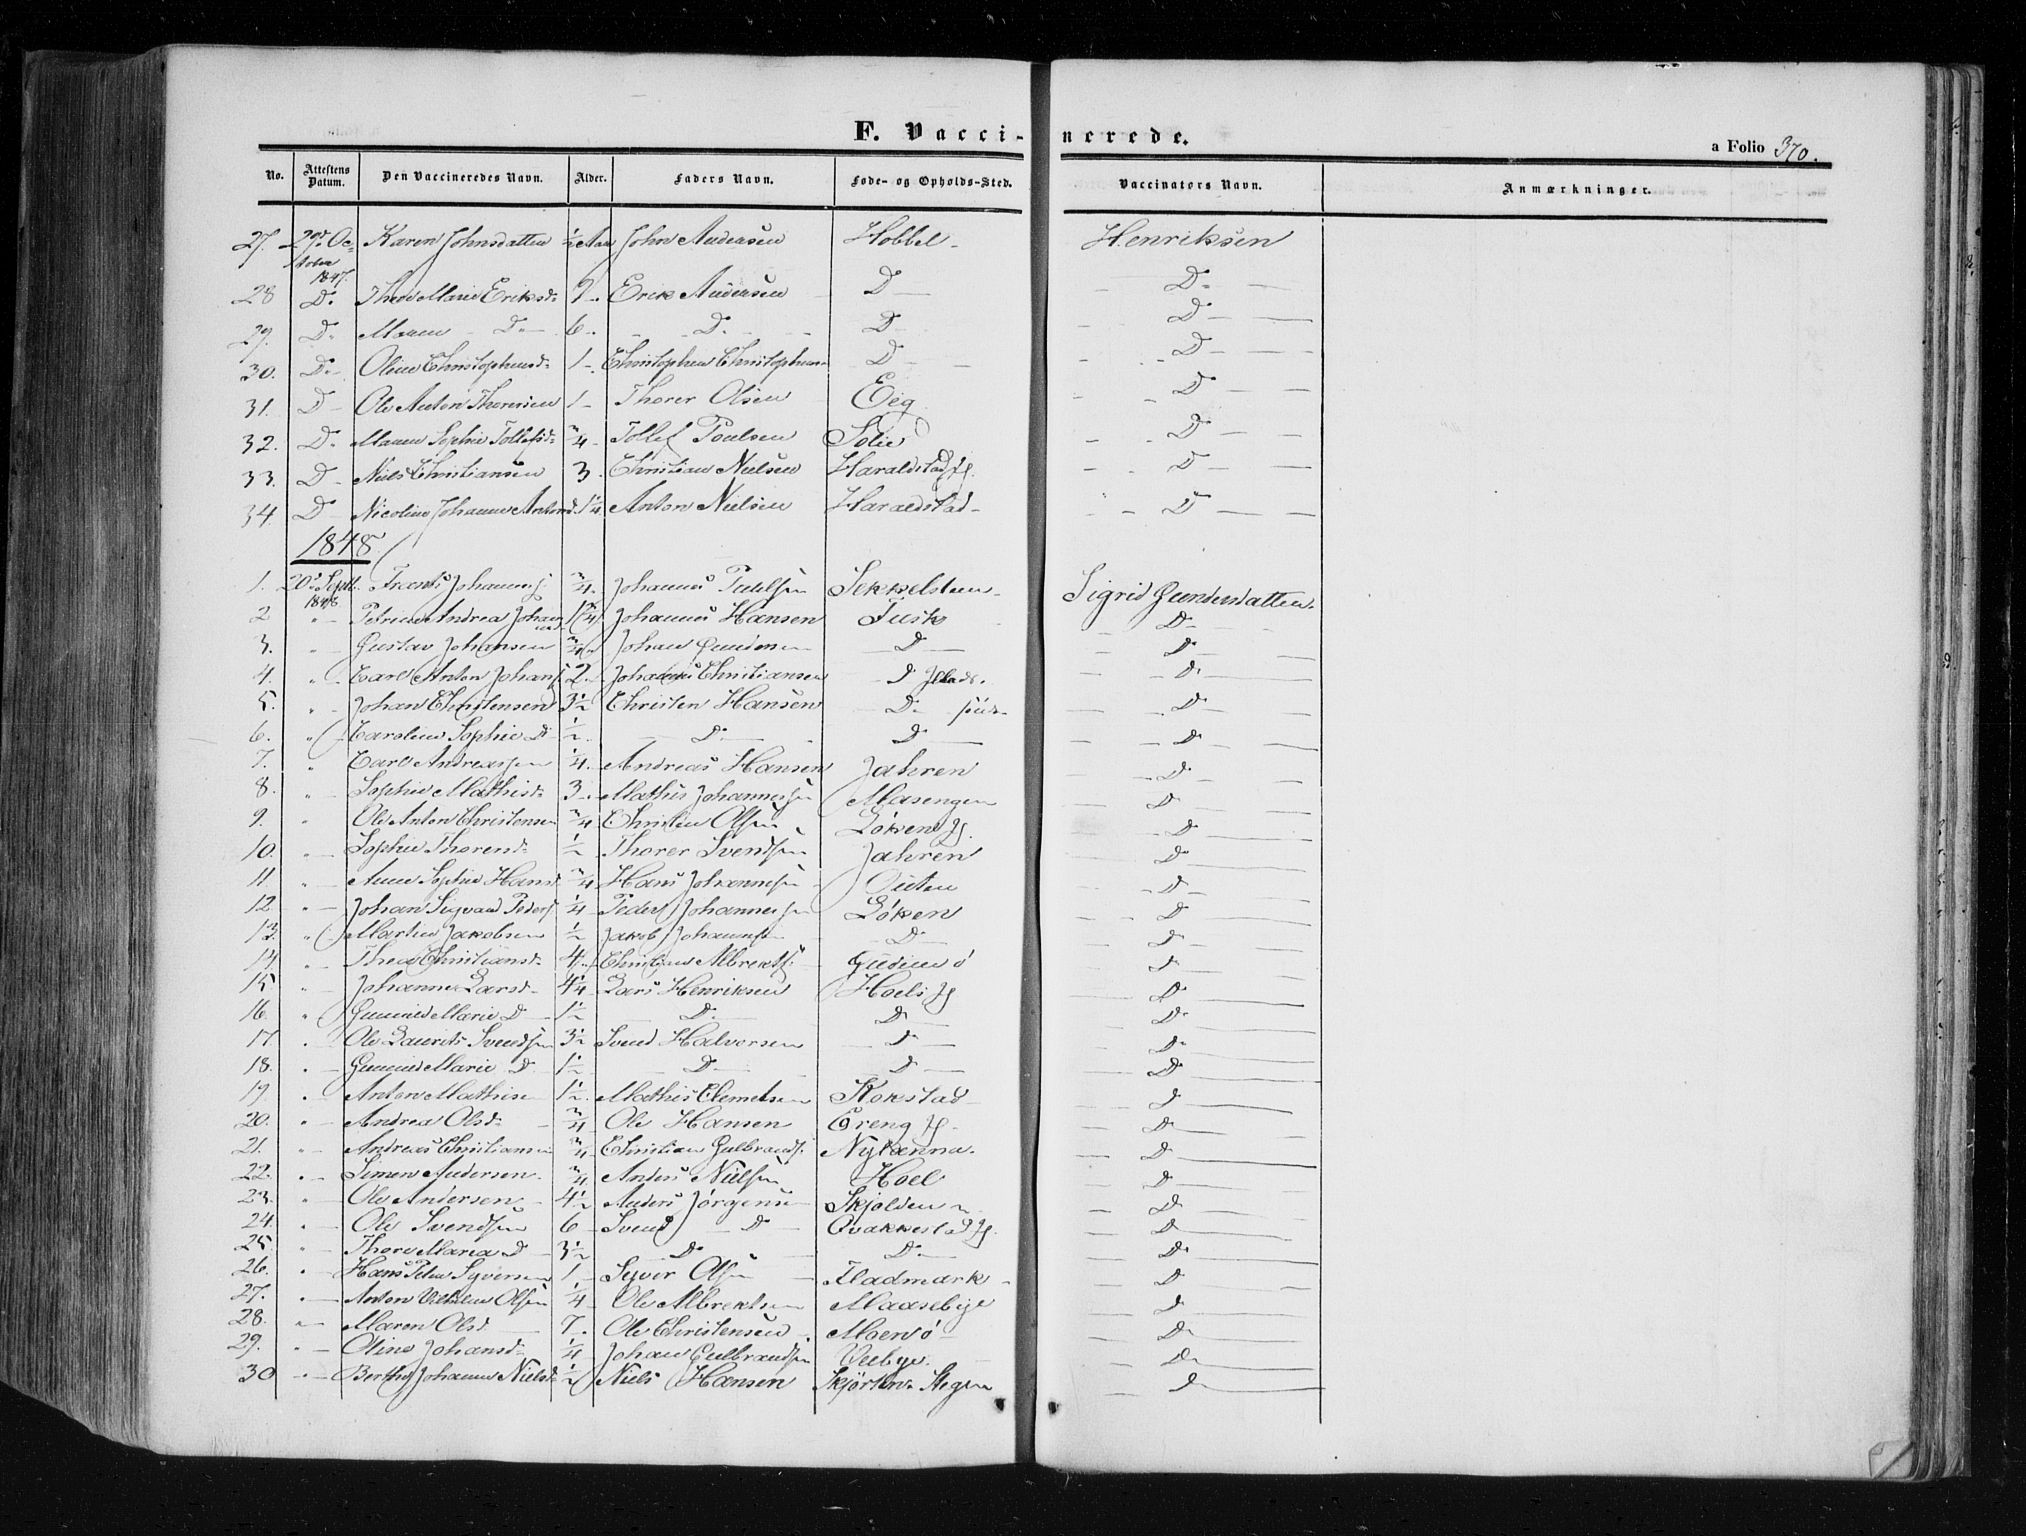 F. Vaccinerede.
a Folio 370.
No. Attestens Datum. Den Vaccineredes Navn. Alder. Faders Navn. Føde- og Opholds-Sted. Vaccinators Navn. Anmærkninger.
27. 29de October 1847. Karen Johnsdatter ½ Aar John Andersen Hobbel Henriksen
28 D. Thea Marie Eriksd. Erik Andersen D D
29. D. Maren D 6 D. D D
30. D. Oline Christophersd. 1 Christopher Christophersen D D
31. D Ole Anton Thorersen 1 Thorer Olsen Eeg D
32. D. Maren Sophie Tollefsd. ¾ Tollef Poulsen Solie D
33. D Niels Christiansen 3. Christian Nielsen Haraldstad D
34. D Nicoline Johanne Antons 1¼ Anton Nielsen Haraldstad D
1848.
1. 20de Septb. 1848 Johannes Sekkelsteen Sigrid Gundersdatter
2 " Petrine Andrea 1¾ Johannes Hansen Tusk D
3. " Gustav Johansen ¾ Johan D D
4. " Carl Anton Johans 2 Johannes Christiansen D D
5. " Johan Christensen 3½ Christen Hansen D D
6. " Caroline Sophie D ½ D D D
7. " Carl Andreassen ¼ Andreas Hansen Jahren D
8. " Sophie Mathisd. 3 Mathis Johannessen Masengen D
9. " Ole Anton Christensen ¾ Christen Olsen Løken D
10. " Sophie Thorersd. ½ Thorer Svendsen Jahren D
11 " Anne Sophie Hansd. ¾ Hans Johannessen D
12. " Johan Sigvard Peders ¼ Peder Johannessen Løken D
13. " Martin Jakobsen ½ Jakob Johannes D D
14 " Thea Christiansd. 4 Christian Albrekts D
15 " Johanne Larsd. 4¼ Lars Henriksen Hoels D
16. " Gunnild Marie D 1½ D D D
17 " Ole Laurits Svendsen 3½ Svend Halvorsen D D
18. " Gunnild Marie D 1½ D D D
19. " Anton Mathisen 1½ Mathis Clemetsen Kokstad D
20. " Andrea Olsd. ¾ Ole Hansen Ereng D
21. " Andreas Christiansen ¾ Christian Gulbrands. D
22. " Simen Andersen ¾ Anders Nielsen Hoel D
23. " Ole Andersen 4½ Anders Jørgensen Skjolden D
24. " Ole Svendsen 6 Svend D Ovakkestad D
25. " Thore Maria D 3½ D D D
26. " Hans Peter Syversen 1 Syver Olsen Fladmark D
27. " Anton Olsen ¼ Ole Albrektsen Maasebye D
28. " Maren Olsd. 7. Ole Christensen Moensø D
29. " Oline Johansd. ¼ Johan Gulbrandsen Veebye D
30 " Berthe Johanne Nielsd. ½ Niels Hansen D